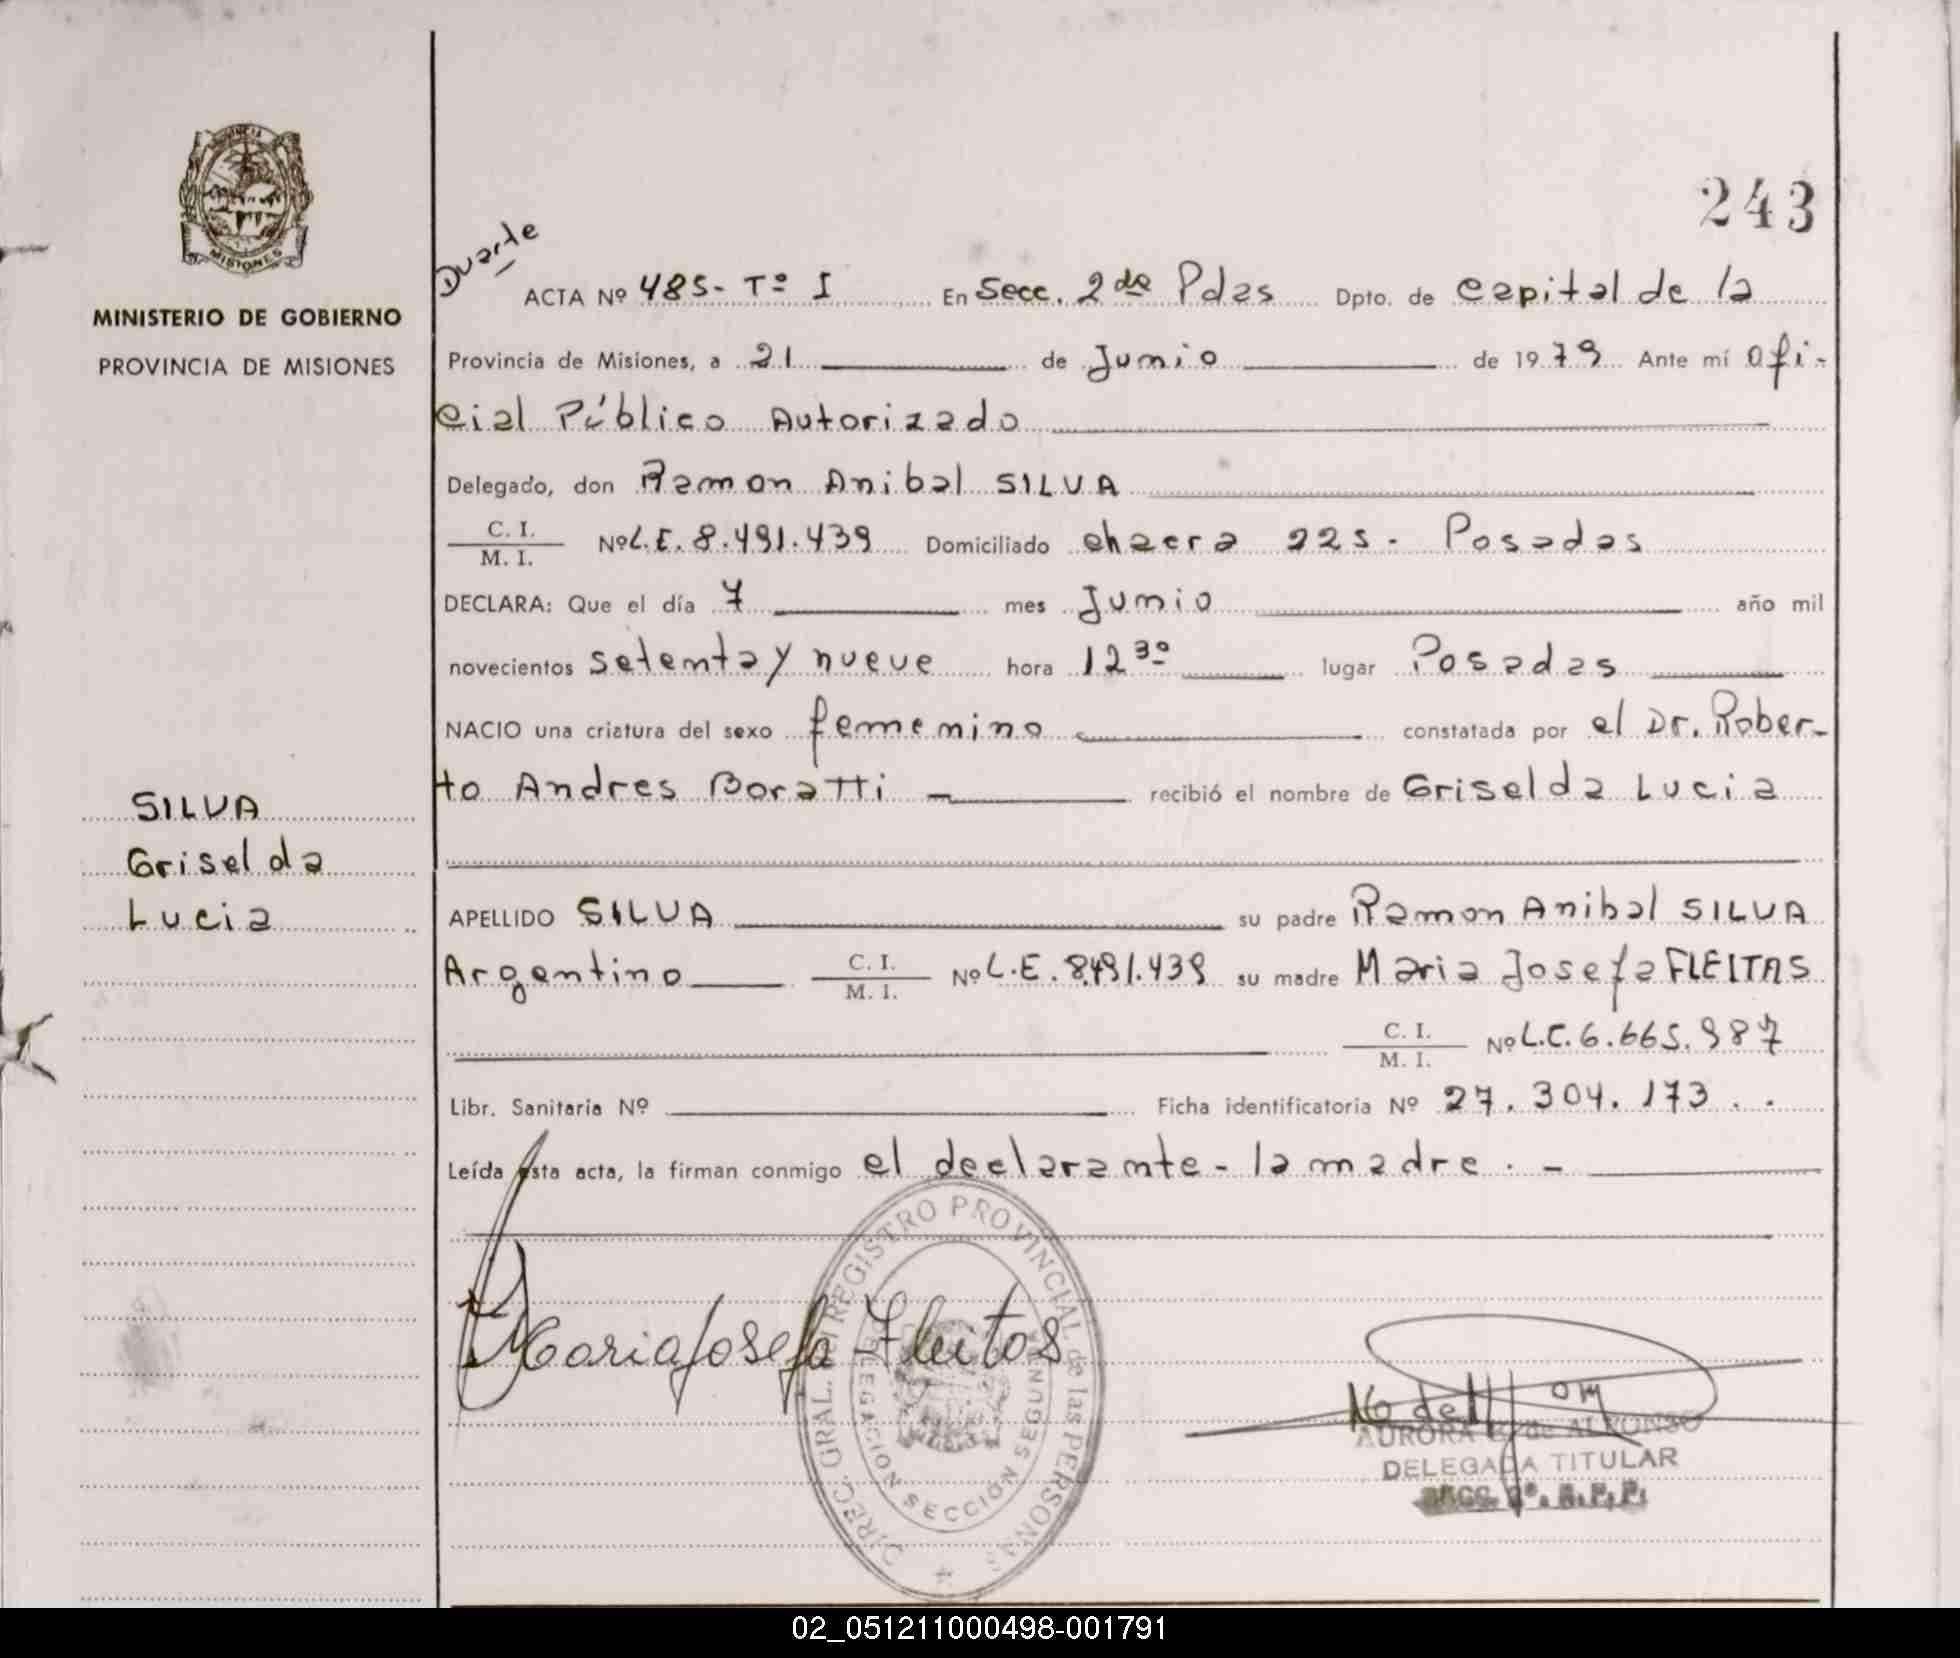 243
PROVINCIA
MISIONES
MINISTERIO DE GOBIERNO
PROVINCIA DE MISIONES
SILVA
Griselda
Lucia
Duarte
ACTA Nº 485- Tº I En Secc. 2da Pdas Dpto. de Capital de la
Provincia de Misiones, a 21 de Junio de 1979 Ante mí Ofi-
cial Público Autorizado
Delegado, don Ramon Anibal SILVA
C. I.
M. I.
Nº L.E. 8.491.439 Domiciliado chacra 225- Posadas
DECLARA: Que el día 7 mes Junio año mil
novecientos setenta y nueve hora 12 30 lugar Posadas
NACIO una criatura del sexo femenino constatada por el Dr. Rober-
to Andres Boratti recibió el nombre de Griselda Lucia
APELLIDO SILVA su padre Ramon Anibal SILVA
Argentino C. I. M. I. Nº L.E. 8.491.439 su madre Maria Josefa FLEITAS
C. I. M. I. Nº L.C. 6.665.987
Libr. Sanitaria Nº Ficha identificatoria Nº 27.304.173..
Leída esta acta, la firman conmigo el declarante - la madre. -
Maria Josefa Fleitas
DIREC. GRAL. del REGISTRO PROVINCIAL de las PERSONAS
DELEGACION SECCIÓN SEGUNDA
AURORA de ALFONSO
DELEGADA TITULAR
SECC. 2ª. R.P.P.
02_051211000498-001791